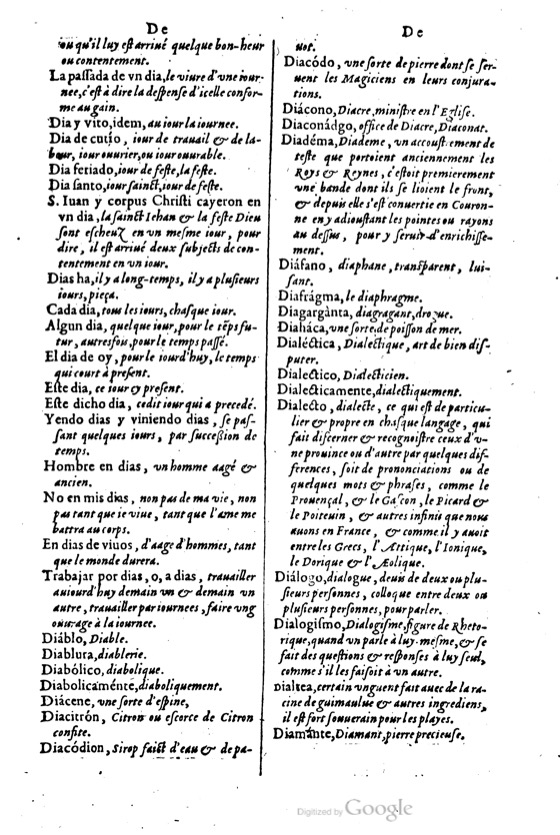 De
ou qu'il luy est arriué quelque bon-heur
ou contentement.
La passada de vn dia, le viure d'vne iour-
nee, c'est à dire la despense d'icelle confor-
me au gain.
Dia y vito, idem, au iour la iournee.
Dia de cutio, iour de trauail & de la-
beur, iour ouurier, ou iour ouurable.
Dia feriado, iour de feste, la feste.
Dia santo, iour sainct, iour de feste.
S. Iuan y corpus Christi cayeron en
vn dia, la sainct Iehan & la feste Dieu
sont escheuz en vn mesme iour, pour
dire, il est arriué deux subjects de con-
tentement en vn iour.
Dias ha, il y a long-temps, il y a plusieurs
iours, pieça.
Cada dia, tous les iours, chasque iour.
Algun dia, quelque iour, pour le tẽps fu-
tur, autresfou, pour le temps passé.
El dia de oy, pour le iourd'huy, le temps
qui court à present.
Este dia, ce iour cy present.
Este dicho dia, cedit iour qui a precedé.
Yendo dias y viniendo dias, se pas-
sant quelques iours, par succession de
temps.
Hombre en dias, vn homme aagé &
ancien.
No en mis dias, non pas de ma vie, non
pas tant que ie viue, tant que l'ame me
battra au corps.
En dias de viuos, d'aage d'hommes, tant
que le monde durera.
Trabajar por dias, o, a dias, trauailler
auiourd'huy demain vn & demain vn
autre, trauailler par iournees, faire vng
ouurage à la iournee.
Diáblo, Diable.
Diablura, diablerie.
Diabólico, diabolique.
Diabolicaménte, diaboliquement.
Diácene, vne sorte d'espine,
Diacitrón, Citron ou escorce de Citron
confite.
Diacódion, Sirop faict d'eau & de pa-
De
uot.
Diacódo, vne sorte de pierre dont se ser-
uent les Magiciens en leurs conjura-
tions.
Diácono, Diacre, ministre en l'Eglise.
Diaconádgo, office de Diacre, Diaconat.
Diadéma, Diademe, vn accoustrement de
teste que portoient anciennement les
Roys & Reynes, c'estoit premierement
vne bande dont ils se lioient le front,
& depuis elle s'est conuertie en Couron-
ne en y adioustant les pointes ou rayons
au dessus, pour y seruir d'enrichisse-
ment.
Diáfano, diaphane, transparent, lui-
sant.
Diafrágma, le diaphragme.
Diagargánta, diagragant, drogue.
Diaháca, vne sorte de poisson de mer.
Dialéctica, Dialectique, art de bien dis-
puter.
Dialectico, Dialecticien.
Dialecticamente, dialectiquement.
Dialecto, dialecte, ce qui est de particu-
lier & propre en chasque langage, qui
fait discerner & recognoistre ceux d'v-
ne prouince ou d'autre par quelques dif-
ferences, soit de prononciations ou de
quelques mots & phrases, comme le
Prouençal, & le Gascon, le Picard &
le Poiteuin, & autres infinis que nous
auons en France, & comme il y auoit
entre les Grecs, l'Attique, l'Ionique,
le Dorique & l'Æolique.
Diálogo, dialogue, deuis de deux ou plu-
sieurs personnes, colloque entre deux ou
plusieurs personnes, pour parler.
Dialogismo, Dialogisme, figure de Rheto-
rique, quand vn parle à luy-mesme, & se
fait des questions & responses à luy seul,
comme s'il les faisoit à vn autre.
Dialtea, certain vnguent fait auec de la ra-
cine de guimaulue & autres ingrediens,
il est fort souuerain pour les playes.
Diamánte, Diamant, pierre precieuse.
Digitized by Google